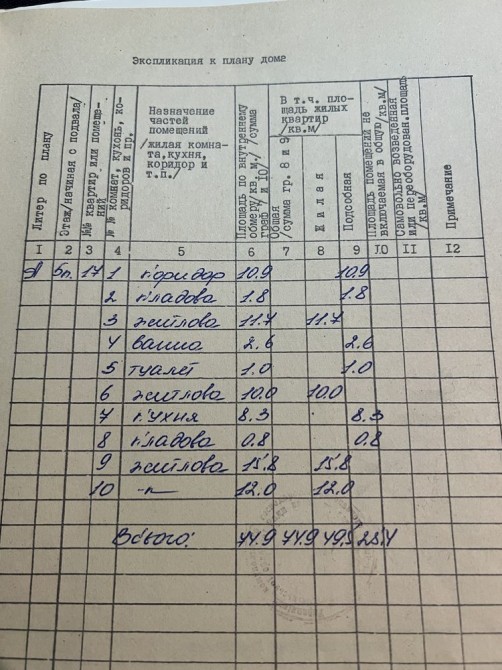 Экспликация к плану дома
Литер по плану
Этаж/начиная с подвала/
№№ квартир или помеще-
ний
№ № комнат, кухонь, ко-
ридоров и пр.
Назначение
частей
помещений/
/жилая комна-
та,кухня,
коридор и
т.п./
Площадь по внутреннему
обмеру/кв.м./ /сумма
граф 7 и 10/
В т.ч. пло-
щадь жилых
квартир
/кв.м/
Общая
/сумма гр. 8 и 9
Жилая
Подсобная
Площадь помещений не
включаемая в общую/кв.м/
Самовольно возведенная
или переоборудован.площадь
/кв.м/
Примечание
I 2 3 4 5 6 7 8 9 IO II I2
5п. 17 1 коридор 10.9 10.9
2 кладова 1.8 1.8
3 житлова 11.7 11.7
4 ванна 2.6 2.6
5 туалет 1.0 1.0
6 житлова 10.0 10.0
7 кухня 8.3 8.3
8 кладова 0.8 0.8
9 житлова 15.8 15.8
10 -"- 12.0 12.0
Всього: 74.9 74.9 49.5 25.4